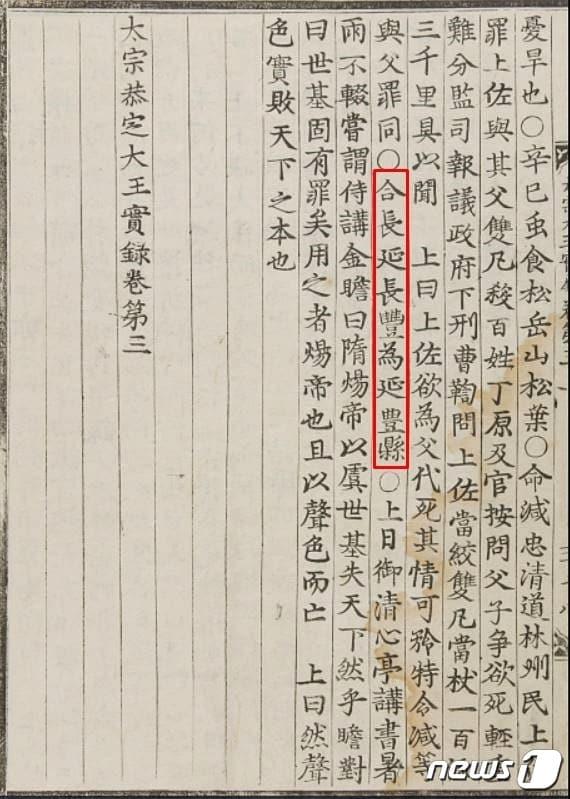 憂旱也○辛巳虫食松岳山松葉○命減忠清道林州民上
罪上佐與其父雙凡殺百姓丁原及官按問父子爭欲死輕
難分監司報議政府下刑曹鞫問上佐當絞雙凡當杖一百
三千里具以聞 上曰上佐欲為父代死其情可矜特令減等
與父罪同○合長延長豊為延豊縣○上日御清心亭講書暑
雨不輟嘗謂侍講金瞻曰隋煬帝以虞世基失天下然乎瞻對
曰世基固有罪矣用之者煬帝也且以聲色而亡 上曰然聲
色實敗天下之本也
太宗恭定大王實錄卷第三
news1